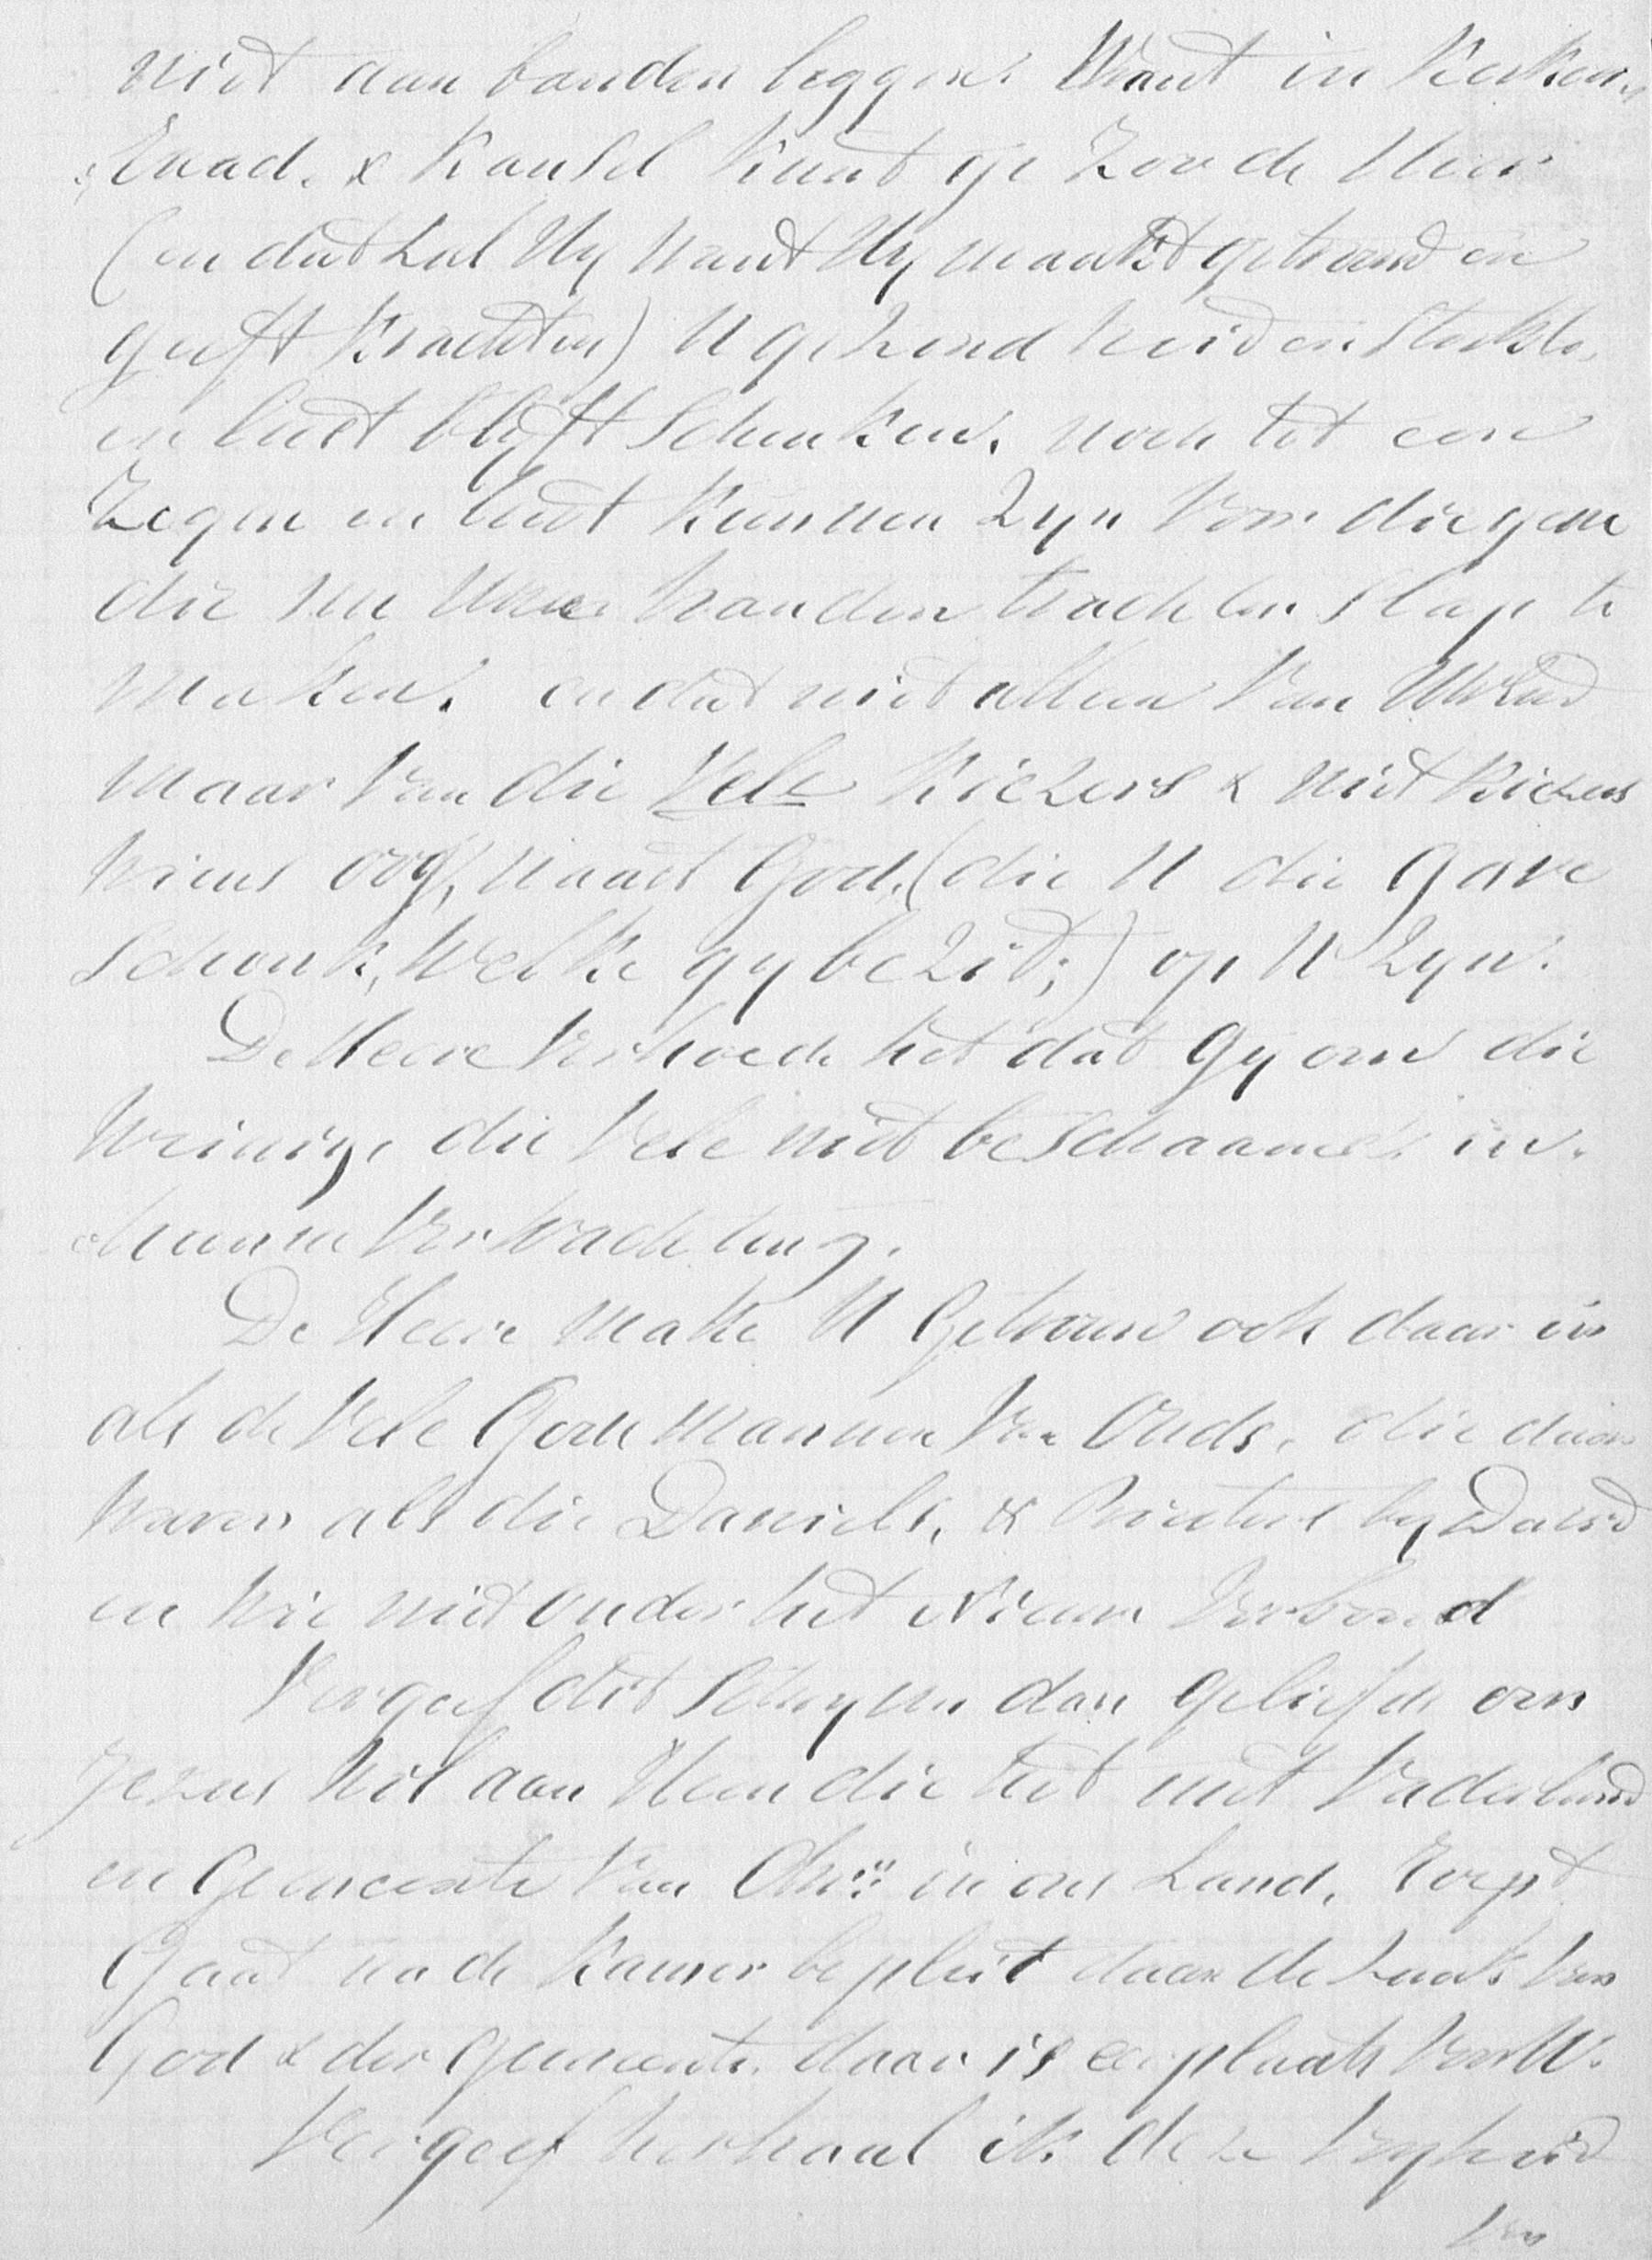 niet aan banden leggen. Want in Kerken,
Raad. & Kansel kunt ge Zoo de Heer
(en dat zal Hy want Hy maakt getrouw en
geeft Krachten) U gezondheid en Sterkte,
en lust blyft Schenken. noch tot een
Zegen en lust kunnen Zyn Voor diegene
die nu Uwe handen trachten Slap te
maken. en dat niet alleen Van
maar Van die Vele Kiezers & niet Kiezers
Wiens oog, naast God, (die U die gave
Schonk, Welke gy bezit;) op U Zyn.
De Heere Verhoede het dat Gy om die
Weinige die Vele niet beschaamd in
hunne Verwachting.
De Heere make U Getrouw ook daar in
als de Vele Gods mannen Van Ouds, die daar
waren als die Daniels, & by David
en wie niet onder het Nieuw Verbond
Vergeef dit Schryven dan geliefde om
Jezus Wil aan Hem die het met Vaderland
en Gemeente Van Chrs in ons Land,
Gaat na de Kamer bepleit daar de Zaak Van
God & der gemeente. daar is een plaats Voor U.
Vergeef herhaal ik deze Vryheid
Van